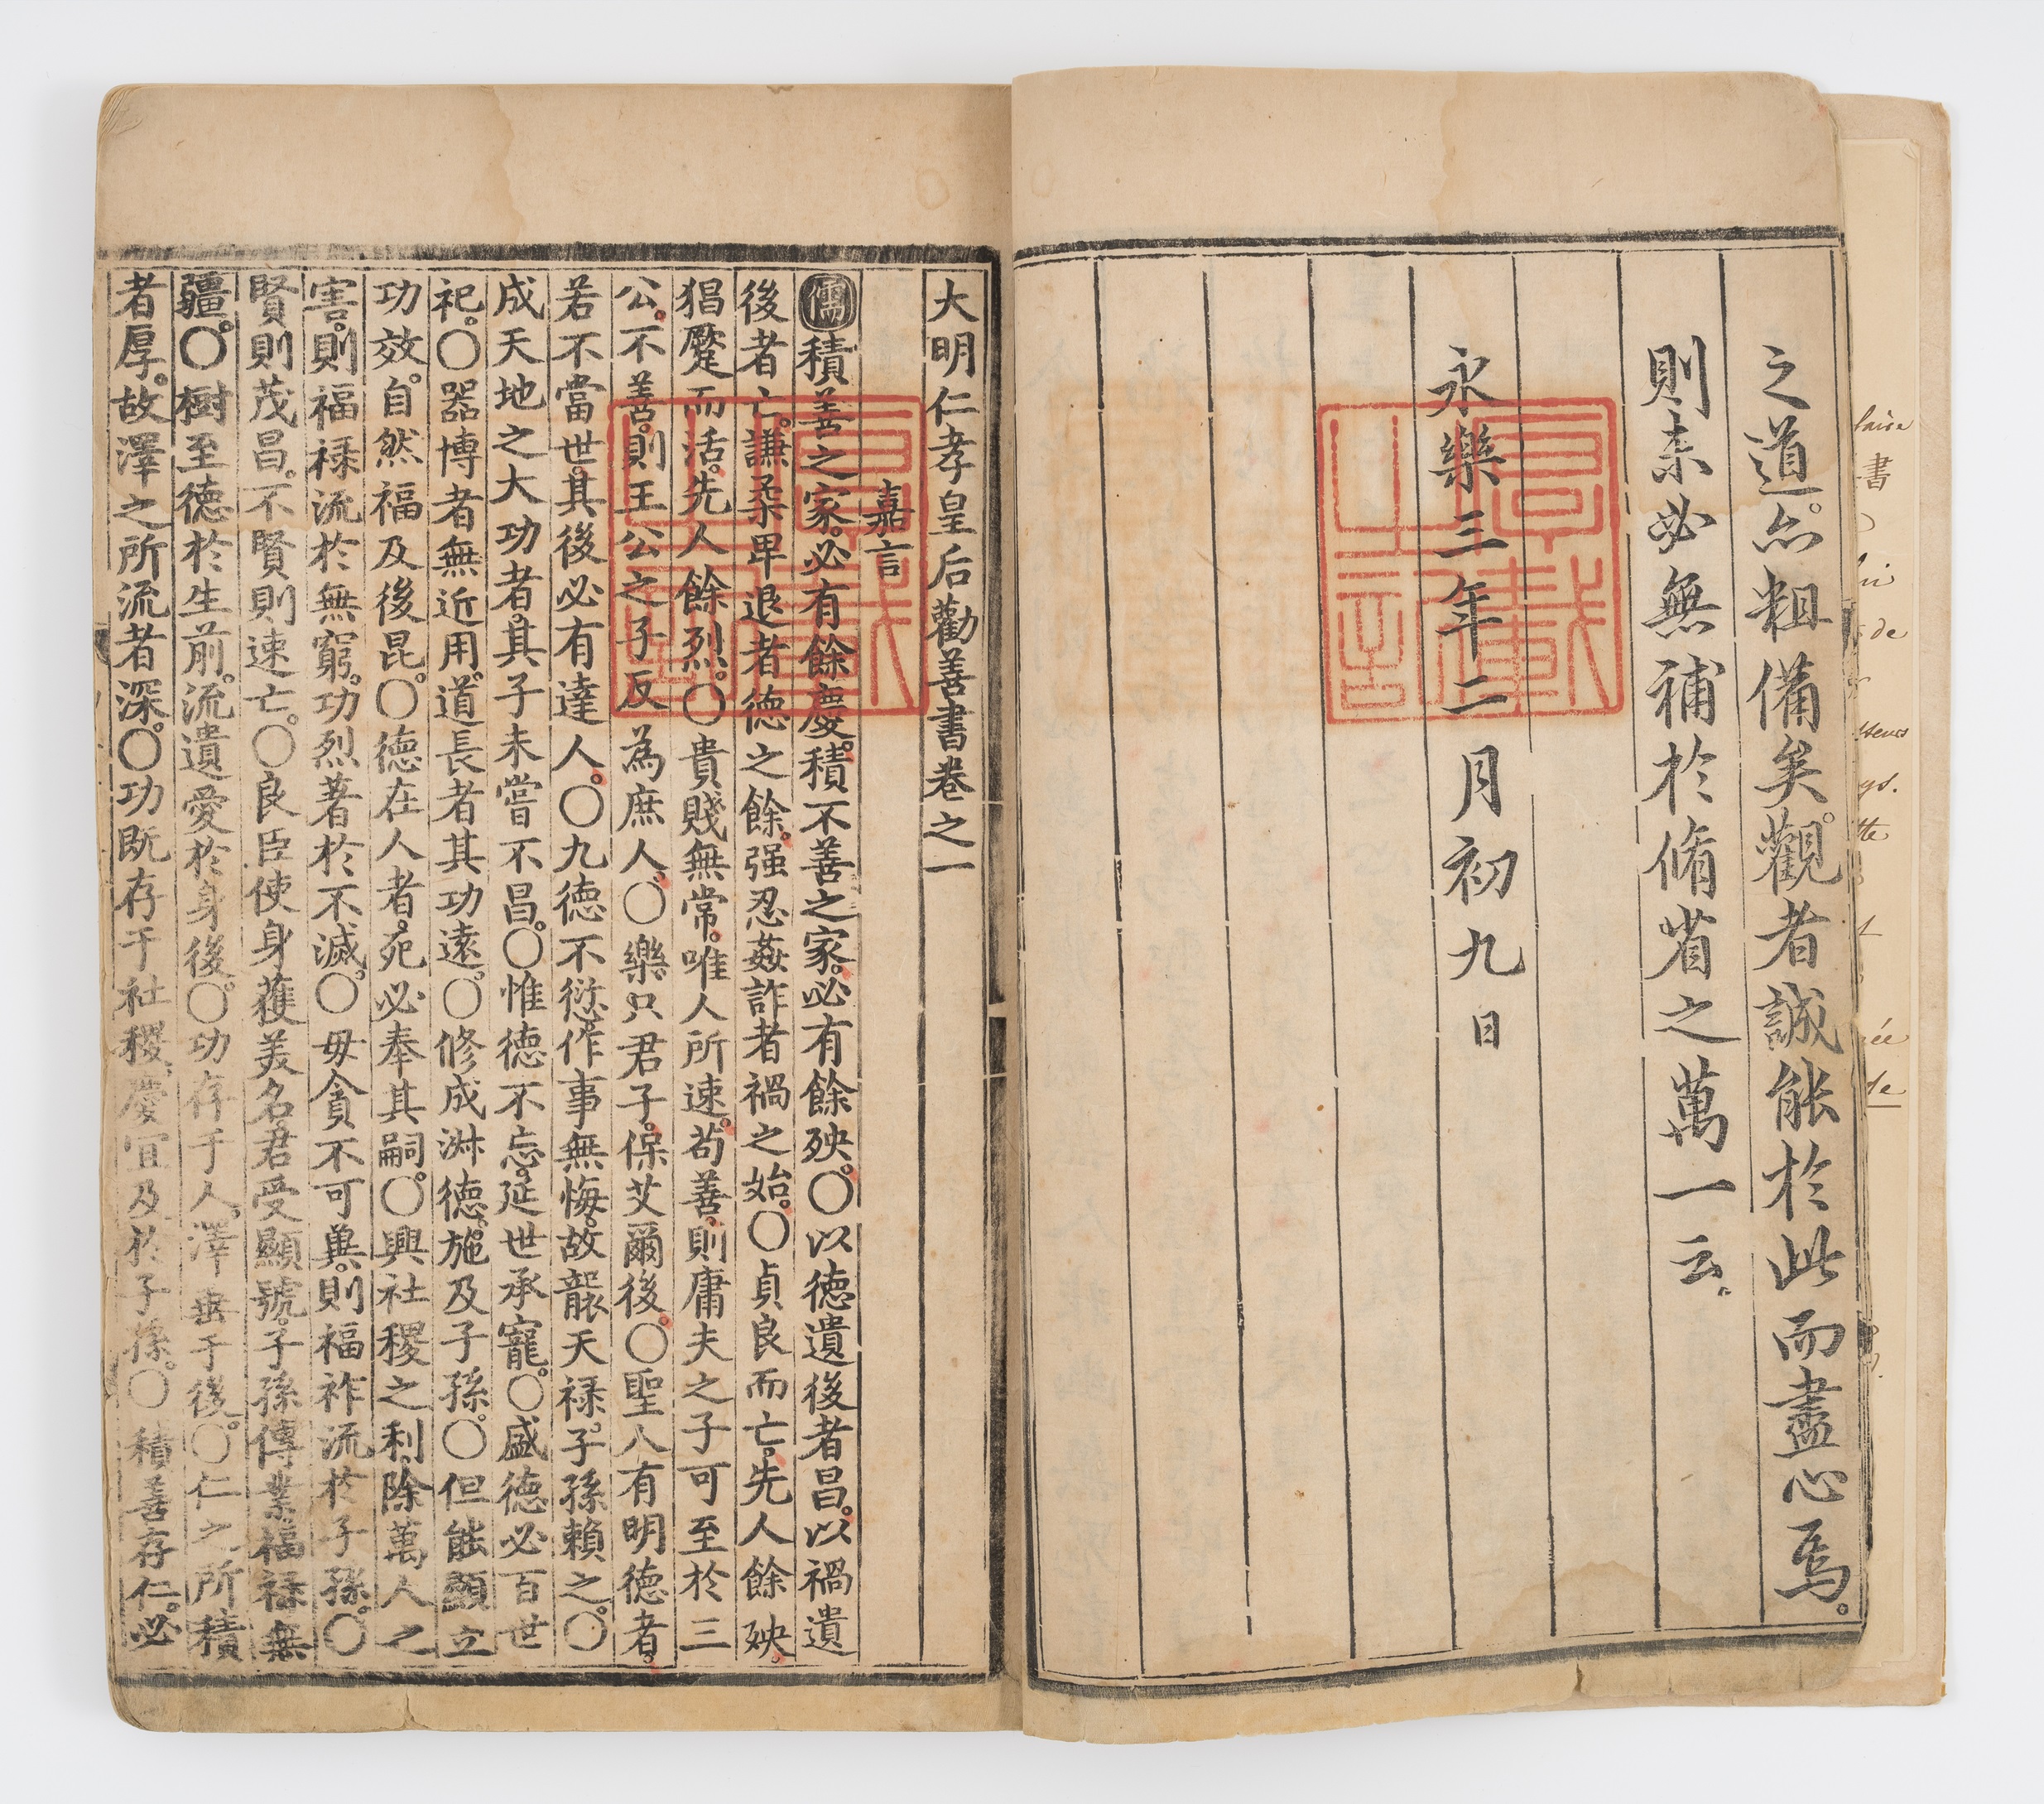 之道。亦粗備矣。觀者誠能於此而盡心焉。
則未必無補於脩省之萬一云。
永樂三年二月初九日
大明仁孝皇后勸善書卷之一
嘉言
儒積善之家。必有餘慶。積不善之家。必有餘殃。○以德遺後者昌。以禍遺
後者亡。謙柔卑退者德之餘。强忍姦詐者禍之始。○貞良而亡。先人餘殃。
猖蹷而活。先人餘烈。○貴賤無常。唯人所速。苟善。則庸夫之子可至於三
公。不善。則王公之子反為庶人。○樂只君子。保艾爾後。○聖人有明德者。
若不當世。其後必有達人。○九德不愆。作事無悔。故襲天禄。子孫賴之。○
成天地之大功者。其子未嘗不昌。○惟德不忘。延世承寵。○盛德必百世
祀。○器博者無近用。道長者其功遠。○修成淋德。施及子孫。○但能顯立
功效。自然福及後昆。○德在人者。死必奉其嗣。○興社稷之利。除萬人之
害。則福禄流於無窮。功烈著於不滅。○毋貪不可冀。則福祚流於子孫。○
賢則茂昌。不賢則速亡。○良臣使身獲美名。君受顯號。子孫傳業福禄無
疆。○樹至德於生前。流遺愛於身後。○功存于人。澤垂于後。○仁之所積
者厚。故澤之所流者深。○功既存于社稷。慶宜及於子孫。○積善存仁。必